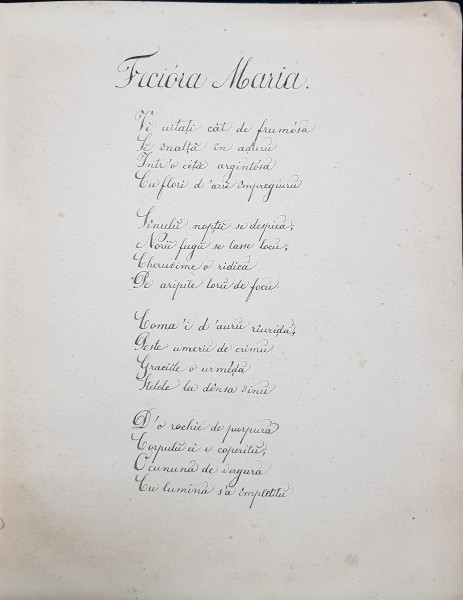 Fecióra Maria.
Vĕ uitați cât de frumósa
Se 'nalță în aduru
Într'o cétă argintósa
Cu flori d'aru împregiuru
Sinulŭ nopții se despica,
Norii fugŭ se lasse locu;
Cherubime o ridica
Pe aripile lorŭ de focu
Coma'i d'auru riuréda;
Peste umerii de crinu
Grațiile o urméda
Stelele la dênsa vinu
D'o rochie de purpura
Corpulŭ ei e coperitŭ;
O cununa de vergura
Cu lumina s'a împletitu